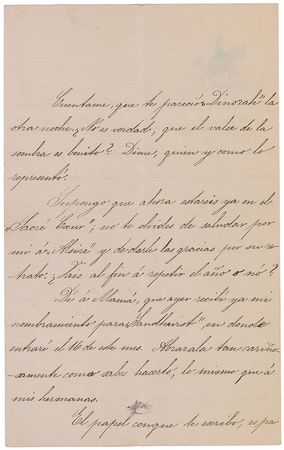 Cuentame, que te pareció "Dinorah" la
otra noche ¿No es verdád, que el valse de la
sombra es bonito? Dime, quien y como lo
representó.
Supongo que ahora estareis ya en el
"Sacré Cœur"; no te olvides de saludar por
mi á, Alsire" y de darle las gracias por su re-
trato. ¿Vais al fin á repetir el año o nó?
Di á Mamá, que ayer recibí ya mi
nombramiento para "Sandhurst" en donde
entraré el 16 de este mes. Abrazala tan cariño-
samente como sabes hacerlo, lo mismo que á
mis hermanas.
El papel conque te escribo, es pa-